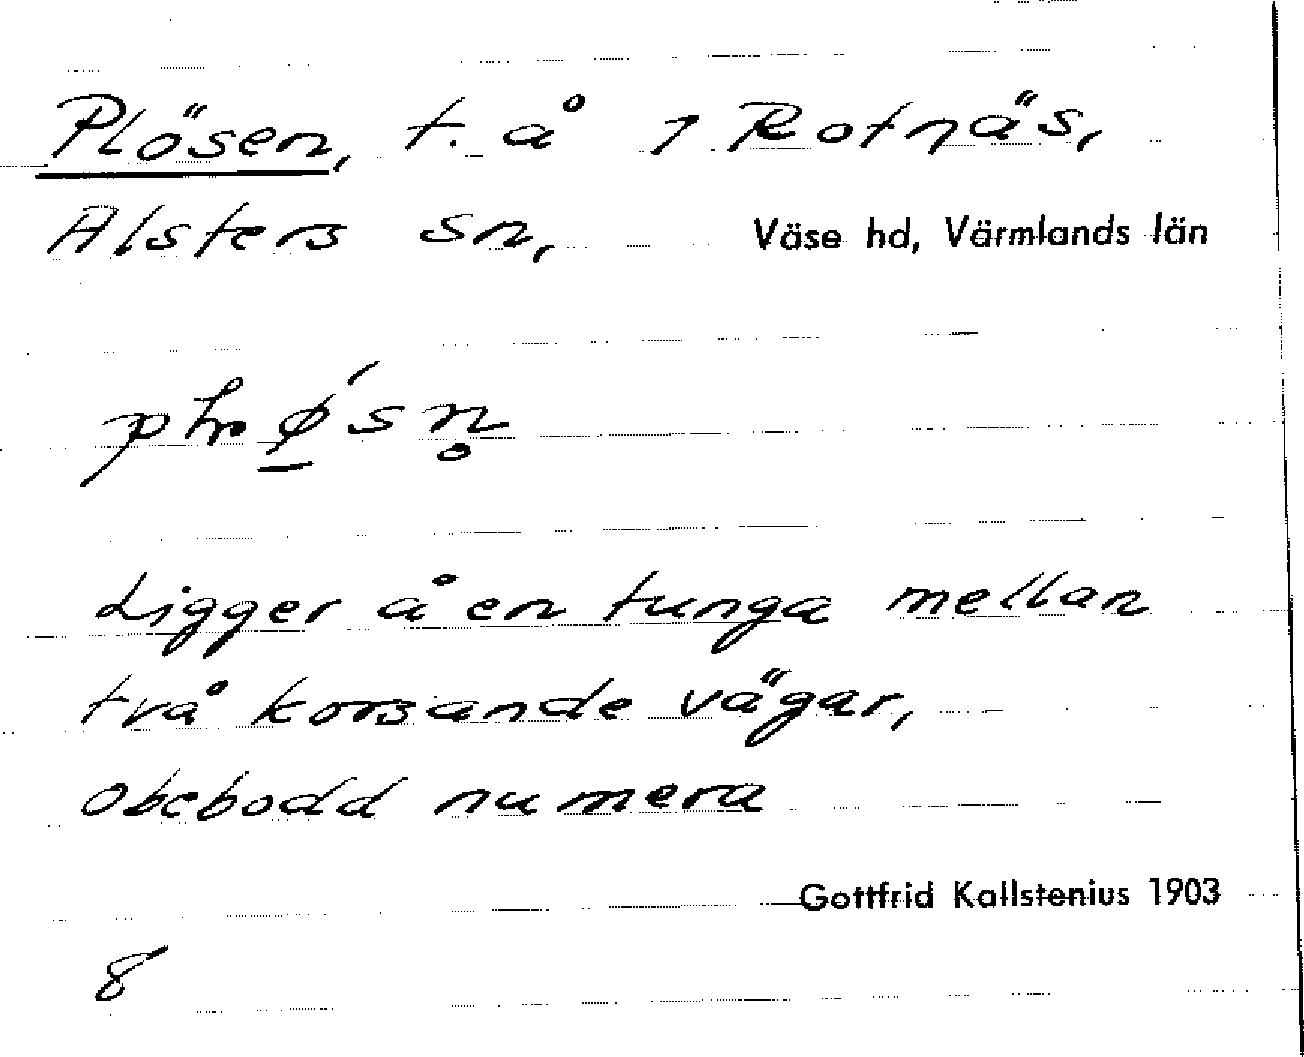 Plösen, t. å 1 Rotnäs,
Alsters sn, Väse hd, Värmlands län
Ligger å en tunga mellan
två korsande vägar,
obebodd numera
Gottfrid Kallstenius 1903
8